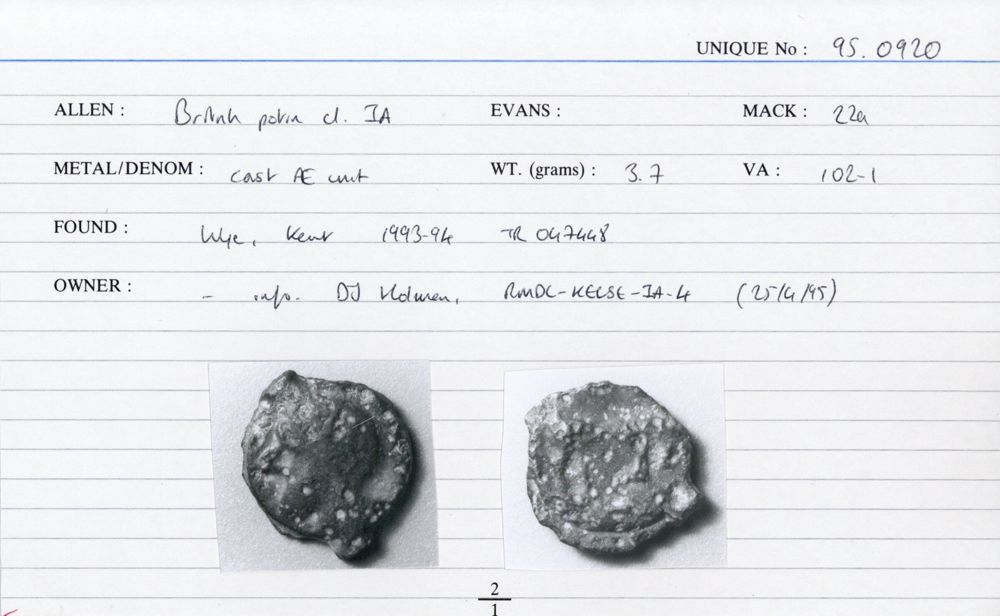 UNIQUE No : 95.0920
ALLEN : British potin cl. IA EVANS : MACK : 22a
METAL/DENOM : cast Æ unit WT. (grams) : 3.7 VA : 102-1
FOUND : Wye, Kent 1993-94 TR 047448
OWNER : - info. DJ Holman, RMDC-KECSE-IA-4 (25/4/95)
2
1